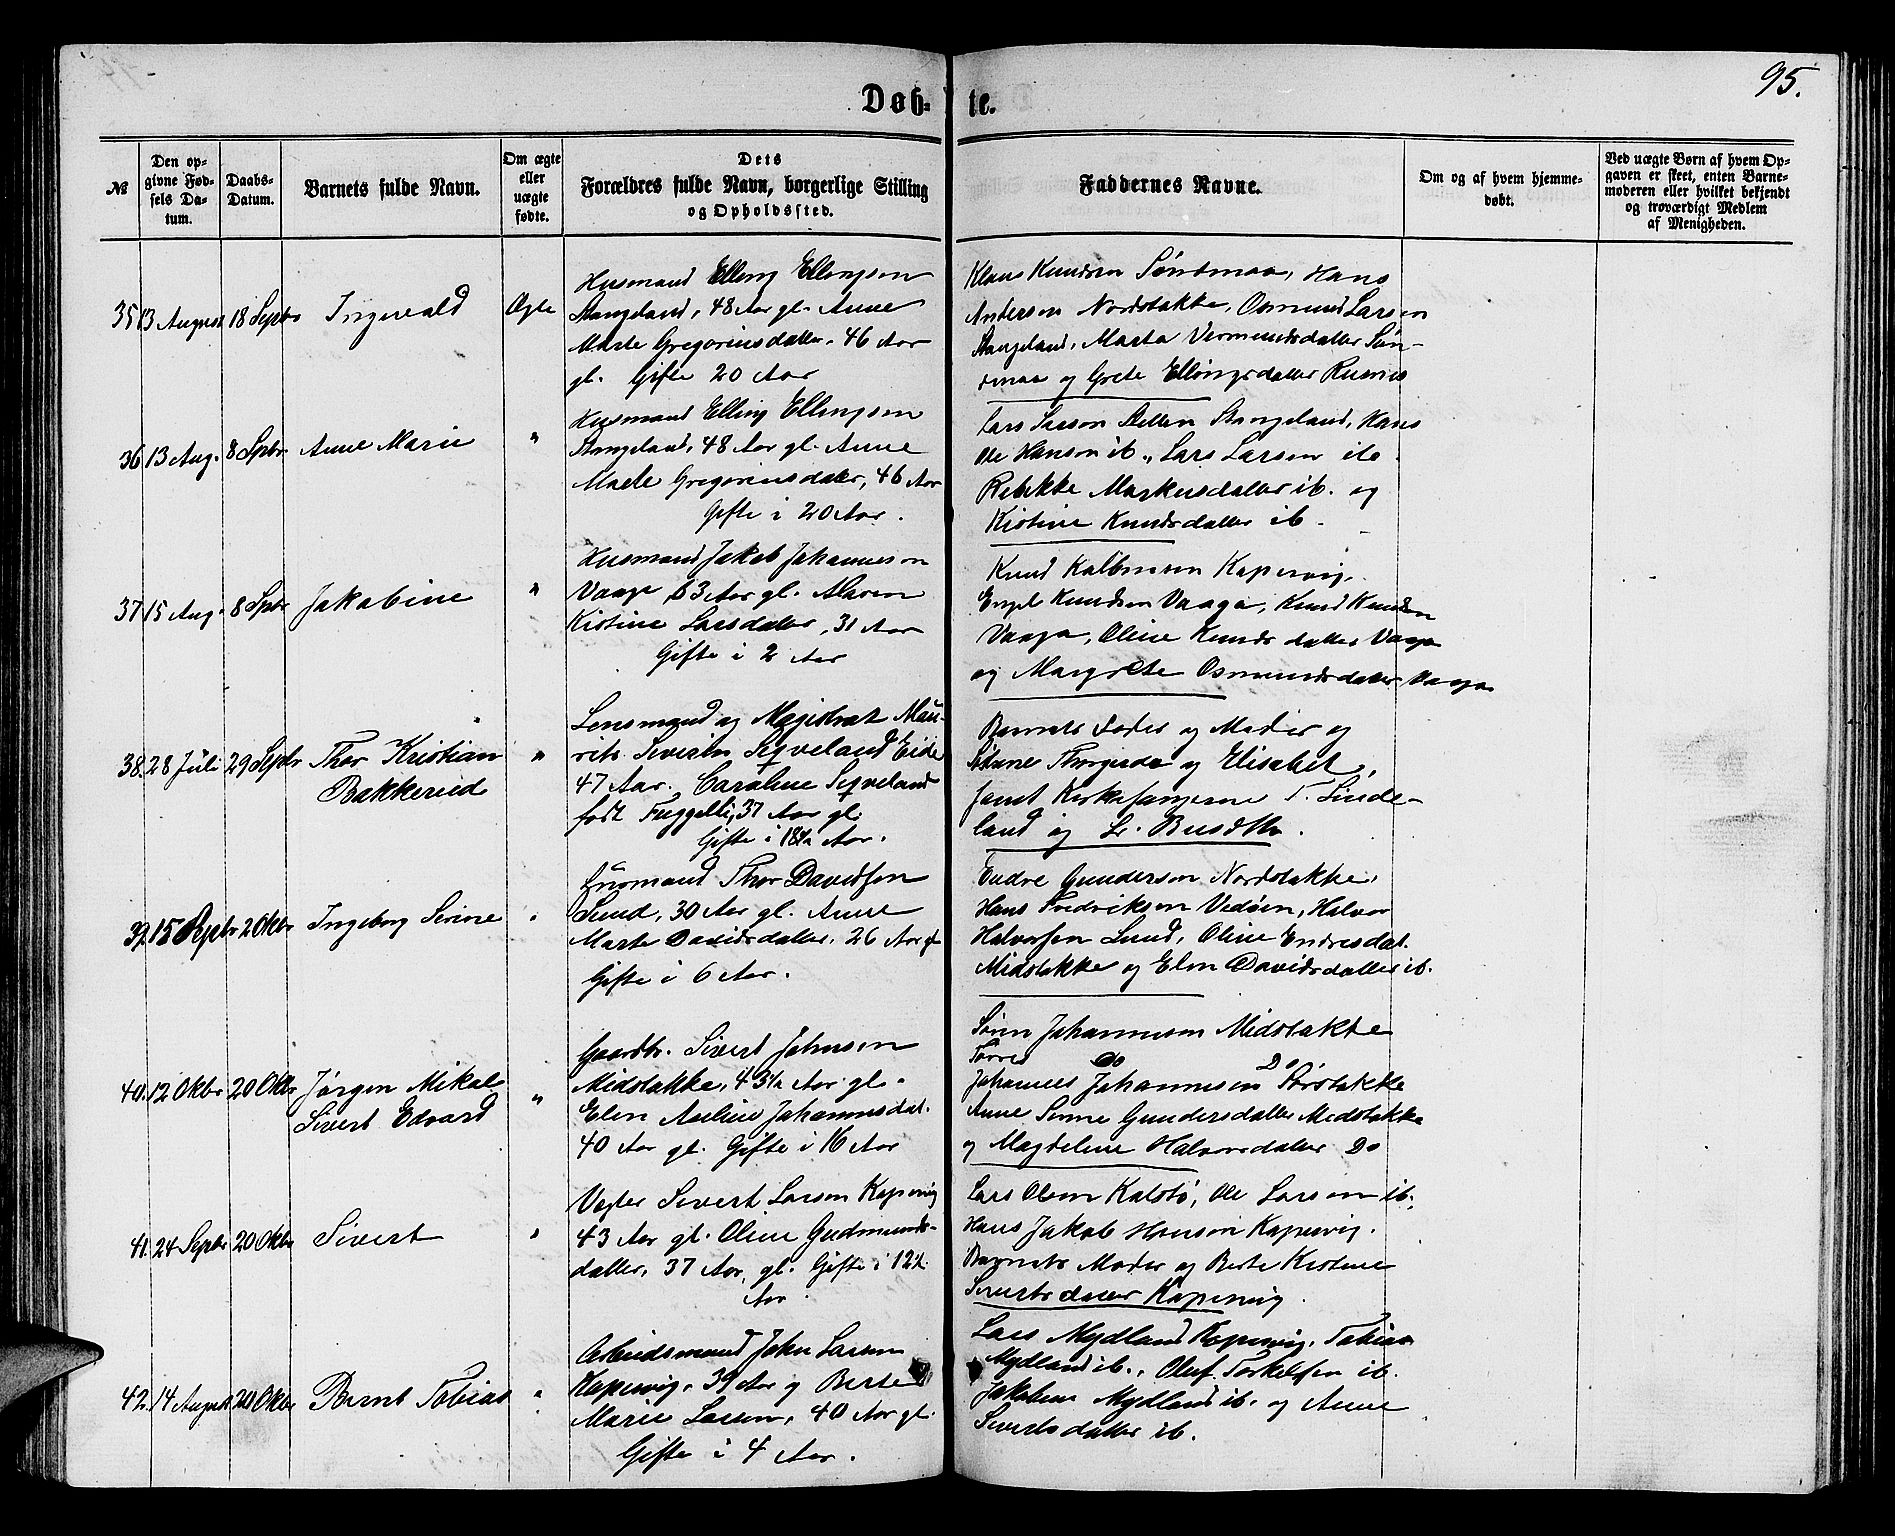 95.
Døb-te.
№
Den opgivne Fødsels Datum.
Daabs-Datum.
Barnets fulde Navn.
Om ægte eller uægte fødte.
Dets Forældres fulde Navn, borgerlige Stilling og Opholdssted.
Faddernes Navne.
Om og af hvem hjemmedøbt.
Ved uægte Børn af hvem Opgaven er skeet, enten Barnemoderen eller hvilket bekjendt og troværdigt Medlem af Menigheden.
35 13 August 18 Septbr Ingevald Ægte
Husmand Elling Ellingsen
Stangeland, 48 Aar gl. Anne
Marte Gregoriusdatter, 46 Aar
gl. Gifte 20 Aar
Klaus Knudsen Søndmaa, Hans
Anderson Nordstakke, Osmund Larsen
Stangeland, Marta Vermundsdatter Søn-
dmaa og Grete Ellingsdatter
36 13 Aug. 8 Septbr Anne Marie "
Husmand Elling Ellingsen
Stangeland, 48 Aar gl. Anne
Marte Gregoriusdatter, 46 Aar
Gifte i 20 Aar.
Lars Larson Stangeland, Hans
Ole Hanson ib., Lars Larsen ib.
Rebekke Markusdatter ib. og
Kistine Knudsdatter ib.
37 15 Aug. 8 Septbr Jakobine "
Husmand Jakob Johanneson
Vaage, 63 Aar gl. Maren
Kistine Larsdatter, 31 Aar
Gifte i 2 Aar
Knud Kopervig,
Engel Knudsen Vaaga, Knud Knudsen
Vaaga, Oline Knudsdatter Vaaga
og Margrete Osmundsdatter Vaaga
38. 28 Juli 29 Septbr Thor Kristian "
Bakkevied
Lensmand og Magistrat Mau-
rits Severin Seqveland Eide
47 Aar. Caroline Seqveland
født Fuggelli, 37 Aar gl.
Gifte i 18½ Aar.
Barnets Fader og Moder og
Thorgersda og Elisabet,
samt Kirkesangerne T. Linde-
land og
39. 15 Septbr 20 Oktbr Ingeborg Serine "
Husmand Thor Davidsen
Sund, 30 Aar gl. Anne
Marta Davidsdatter, 26 Aar gl
Gifte i 6 Aar.
Endre Gunderson Nordstakke,
Hans Fredriksen Vedøen, Halvor
Halvorsen Sund, Oline Endresdat.
Midstakke og Elen Davidsdatter ib.
40. 12 Oktbr 20 Oktbr Jørgen Mikal "
Sivert Edvard
Gaardbr. Sivert Johnsen
Midstakke, 43½ Aar gl.
Elen Aaline Johannesdat.
40 Aar gl. Gifte i 16 Aar
Søren Johannesen Midstakke
Torres Do Do
Johannes Johannesen Sørstakke
Anne Serine Gundersdatter Midstakke
og Magdeline Halvorsdatter Do
41. 24 Septbr 20 Oktbr Sivert "
Vegter Sivert Larsen Kopervig
43 Aar gl. Oline Gudmunds-
datter, 37 Aar gl. Gifte i 12½
Aar.
Lars Olsen Kalstø, Ole Larsen ib.
Hans Jakob Hanson Kopervig.
Barnets Moder og Berte Kistine
Sivertsdatter Kopervig
42. 14 August 20 Oktbr Bernt Tobias "
Arbeidsmand John Larsen
Kopervig, 39 Aar og Berte
Marie Larsen, 40 Aar gl.
Gifte i 4 Aar.
Lars Mydland Kopervig, Tobias
Mydland ib., Oluf Torkelsen ib.
Jakobine Mydland ib. og Anne
Sivertsdatter ib.